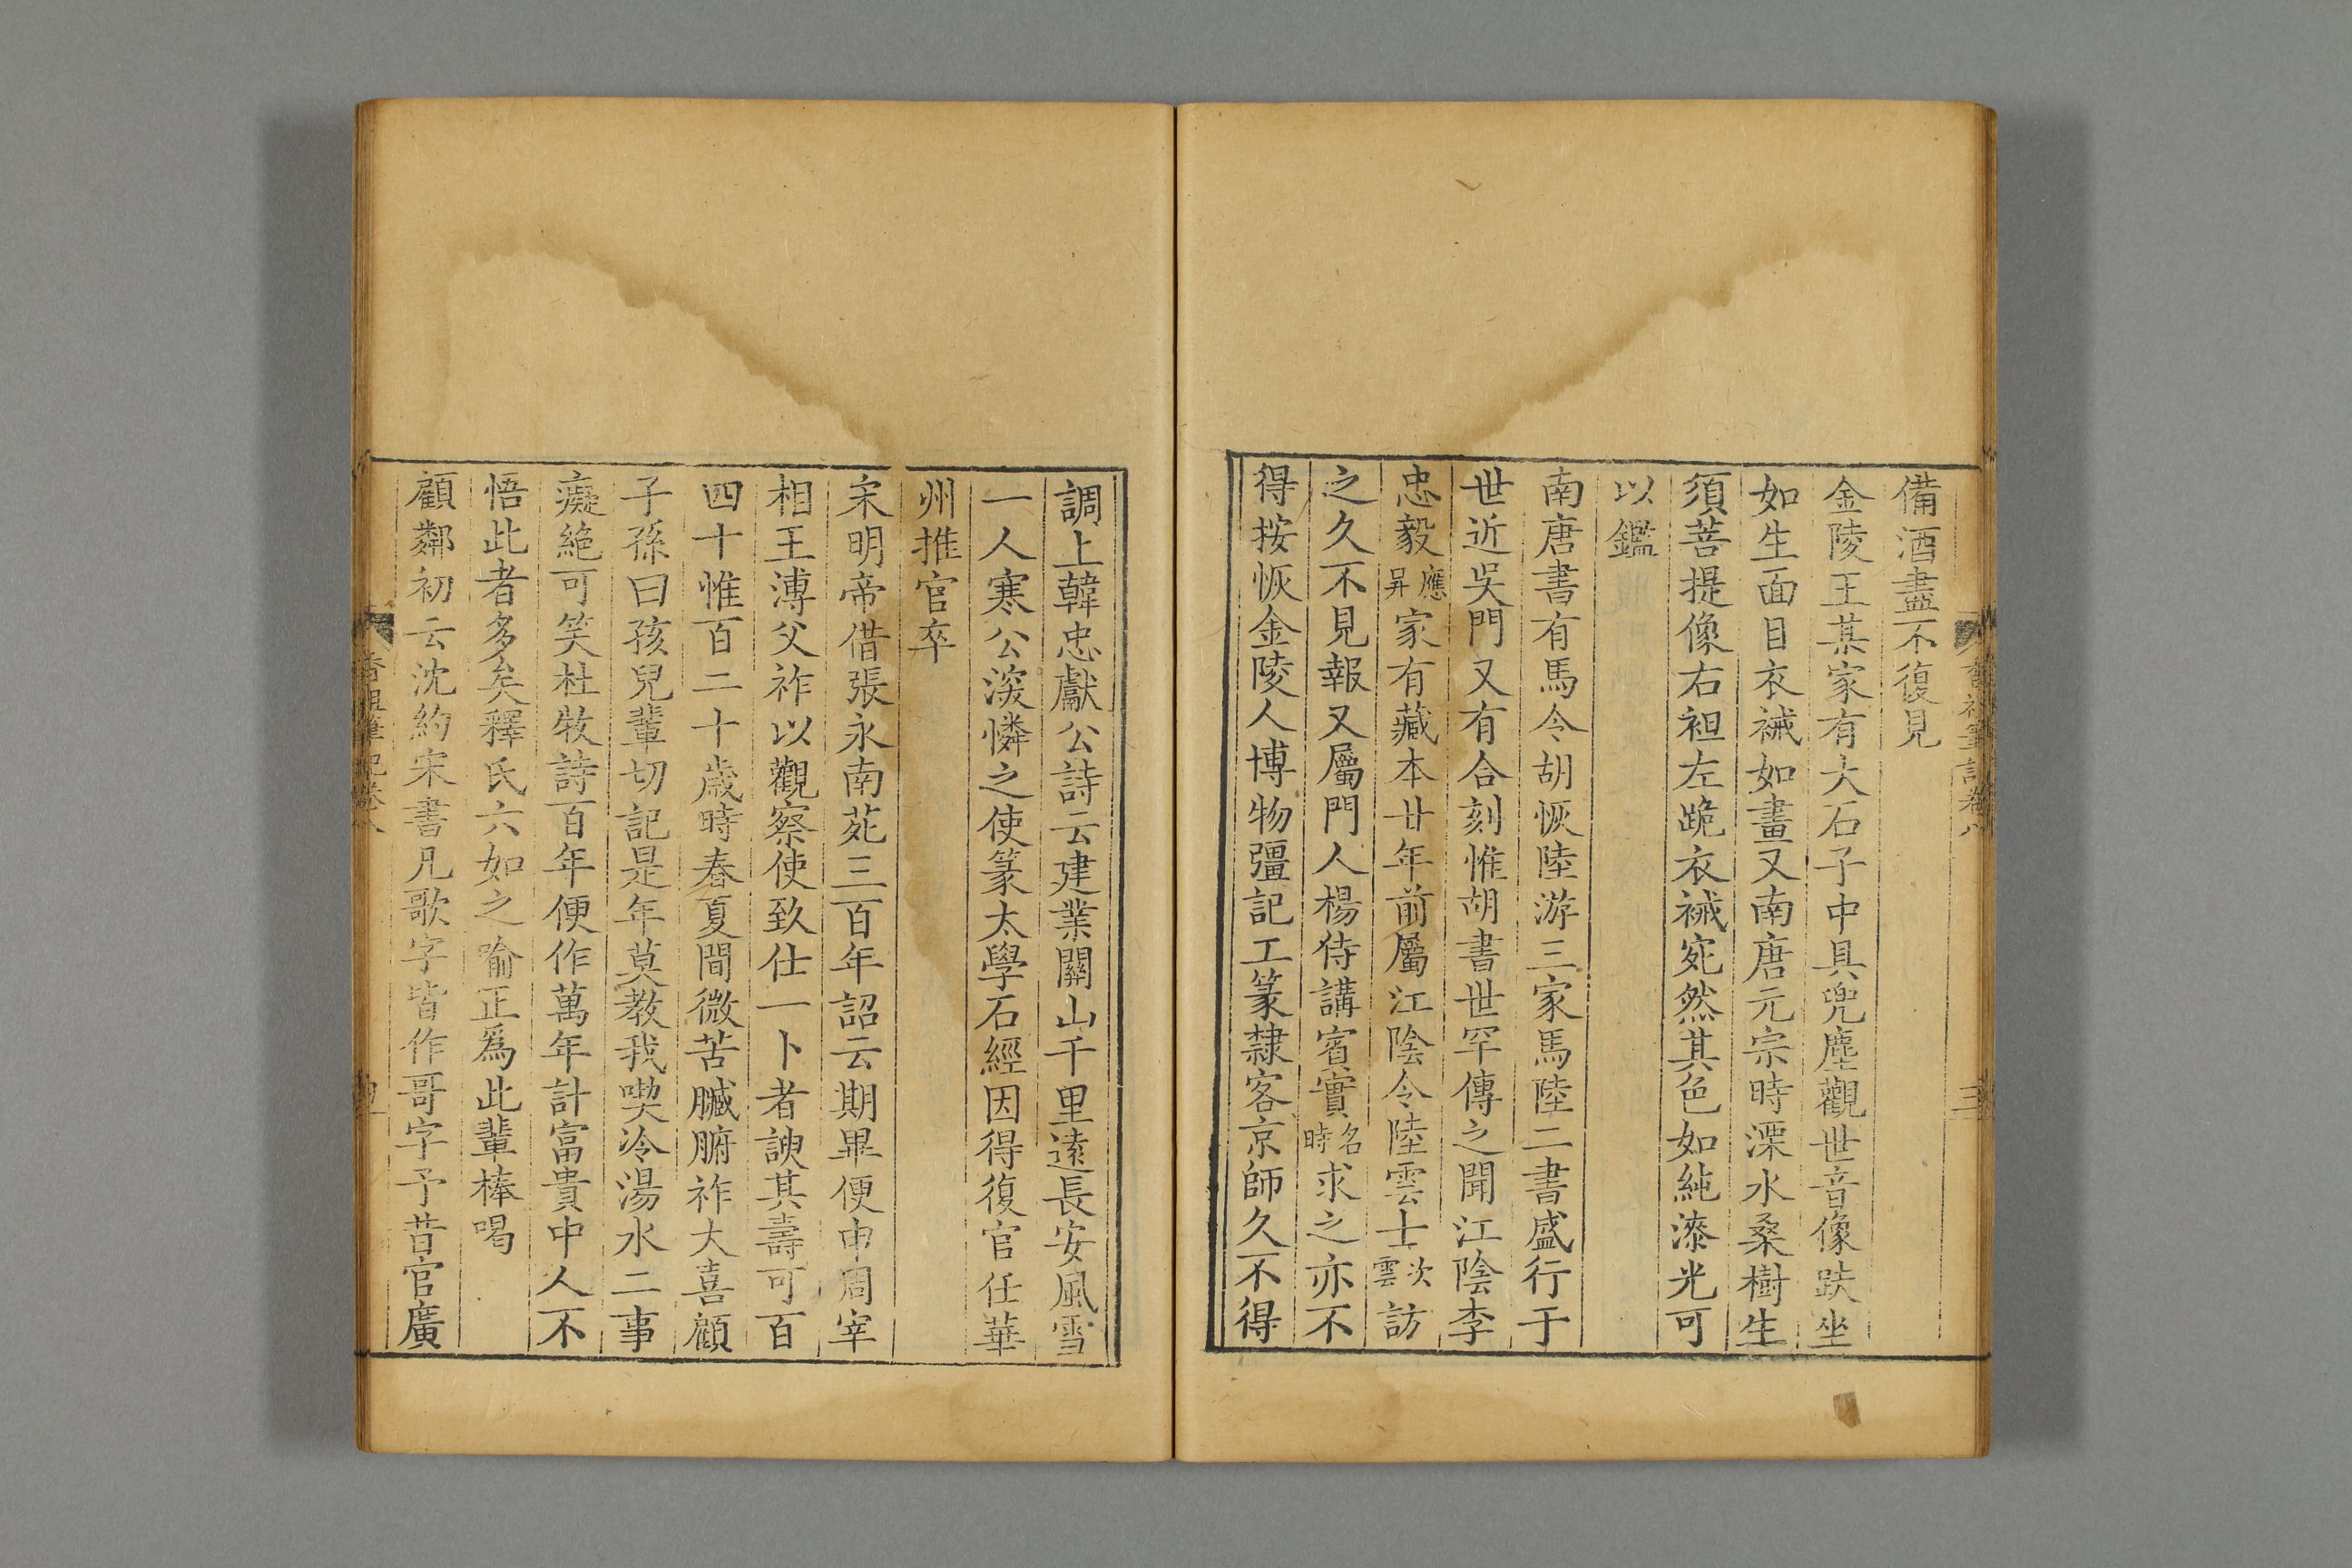 備酒盡不復見
金陵王某家有大石子中具兜塵觀世音像趺坐
如生面目衣祴如畫又南唐元宗時溧水桑樹生
須菩提像右袒左跪衣祴宛然其色如純漆光可
以鑑
南唐書有馬令胡恢陸游三家馬陸二書盛行于
世近吳門又有合刻惟胡書世罕傳之聞江陰李
忠毅應昇家有藏本廿年前屬江陰令陸雲士次雲訪
之久不見報又屬門人楊侍講賓實名時求之亦不
得按恢金陵人博物彊記工篆隸客京師久不得
香祖筆記卷八
三
調上韓忠獻公詩云建業關山千里遠長安風雪
一人寒公深憐之使篆太學石經因得復官任華
州推官卒
宋明帝借張永南苑三百年詔云期畢便申周宰
相王溥父祚以觀察使致仕一卜者諛其壽可百
四十惟百二十歲時春夏間微苦臟腑祚大喜顧
子孫曰孩兒輩切記是年莫教我喫冷湯水二事
癡絕可笑杜牧詩百年便作萬年計富貴中人不
悟此者多矣釋氏六如之喻正爲此輩棒喝
顧鄰初云沈約宋書凡歌字皆作哥字予昔官廣
香祖筆記卷八